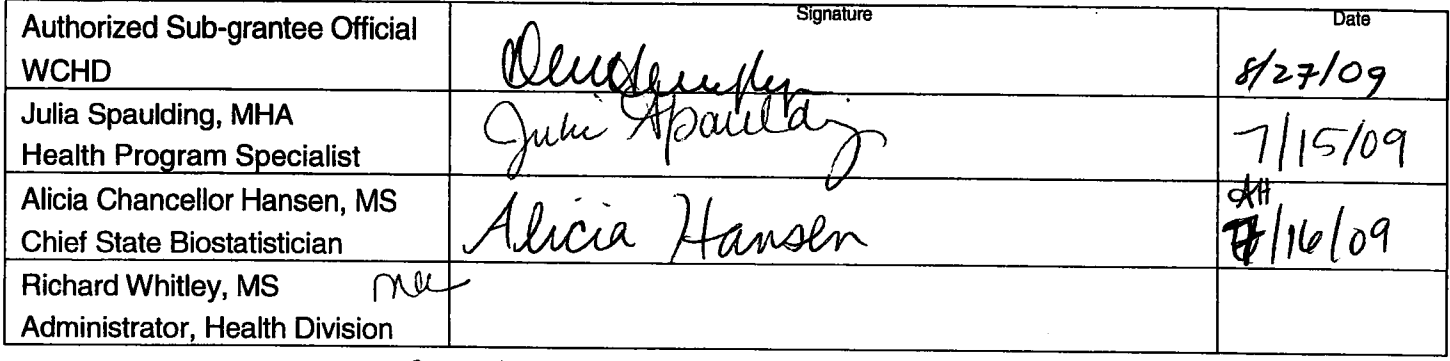 Signature Date
Authorized Sub-grantee Official
WCHD 8/27/09
Julia Spaulding, MHA
Health Program Specialist Julie Spaulding 7/15/09
Alicia Chancellor Hansen, MS AH
Chief State Biostatistician Alicia Hansen 7/16/09
Richard Whitley, MS
Administrator, Health Division